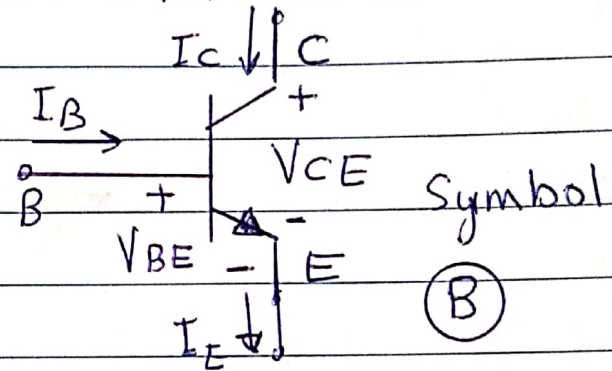 IC C
+
IB
VCE
B + Symbol
-
VBE - E
B
IE